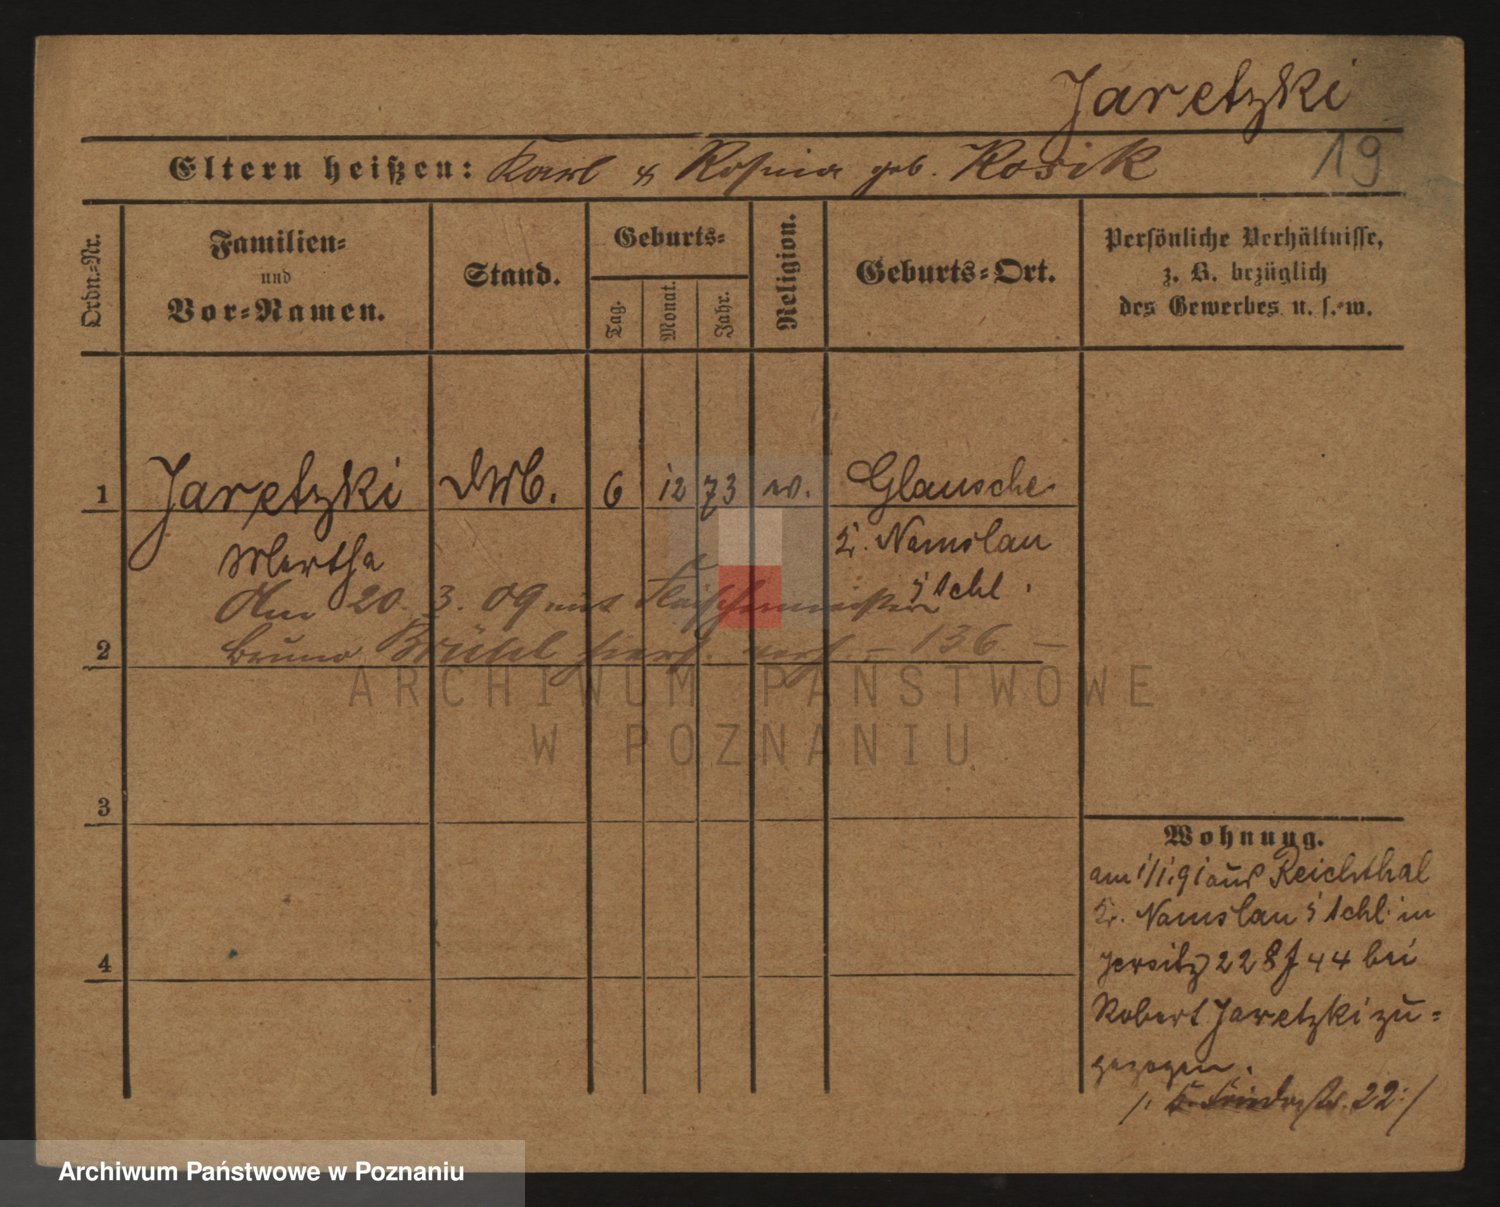 Jaretzki
Eltern heißen: Karl & Rosina geb. Kosik
19
Ordn.-Nr.
Familien-
und
Vor-Namen.
Stand.
Geburts-
Tag.
Monat.
Jahr.
Religion.
Geburts-Ort.
Persönliche Verhältnisse,
z. B. bezüglich
des Gewerbes u. s. w.
1 Jaretzki 6 12 73 Glausche
Martha Kr. Namslau
i/Schl.
Am 20. 3. 09 mit Fleischermeister
2 Bruno verh. – 136 –
ARCHIWUM PAŃSTWOWE
W POZNANIU
3
4
Wohnung.
am 1/1.91 aus Reichthal
Kr. Namslau i/Schl. in
Jersitz 228 44 bei
Robert Jaretzki zu-
gezogen.
22
Archiwum Państwowe w Poznaniu